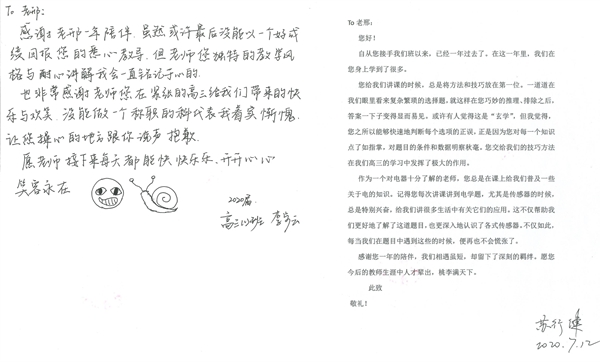 To 老邢:
感谢老邢一年陪伴. 虽然或许最后没能以一个好成
绩回报您的悉心教导. 但老师您独特的教学风
格与耐心讲解我会一直铭记于心的.
也非常感谢老师您在紧张的高三给我们带来的快
乐与欢笑. 没能做一个称职的科代表我着实惭愧
让您操心的地方跟你说声抱歉.
愿老师接下来每天都能快快乐乐. 开开心心
笑容永在
2020届
高三 班 李
To 老邢:
您好!
自从您接手我们班以来, 已经一年过去了。在这一年里, 我们在
您身上学到了很多。
您给我们讲课的时候, 总是将方法和技巧放在第一位。一道道在
我们眼里看来复杂繁琐的选择题, 就这样在您巧妙的推理、排除之后,
答案一下子变得显而易见。或许有人觉得这是“玄学”, 但我觉得,
您之所以能够快速地判断每个选项的正误, 正是因为您对每一个知识
点了如指掌, 对题目的条件和数据明察秋毫。您交给我们的技巧方法
在我们高三的学习中发挥了极大的作用。
作为一个对电器十分了解的老师, 您总是在课上给我们普及一些
关于电的知识。记得您每次讲课讲到电学题, 尤其是传感器的时候,
总是特别兴奋, 给我们讲很多生活中有关它们的应用。这不仅帮助我
们更好地了解了这道题目, 也更深入地认识了各式传感器。不仅如此,
每当我们在题目中遇到这些的时候, 便再也不会慌张了。
感谢您一年的陪伴, 我们相遇虽短, 却留下了深刻的羁绊, 愿您
今后的教师生涯中人才辈出、桃李满天下。
此致
敬礼!
苏行健
2020.7.12